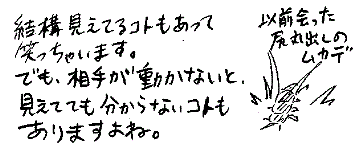 結構見えてるコトもあって
笑っちゃいます。
でも、相手が動かないと、
見えてても分からないコトも
ありますよね。
以前会った
尻丸出しの
ムカデ